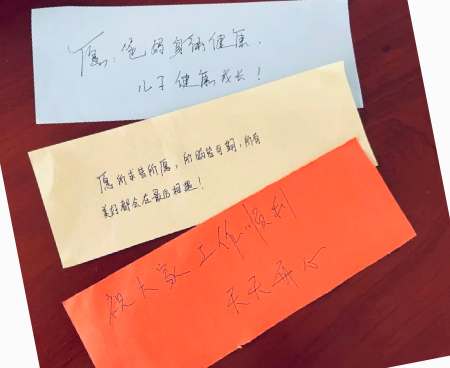 愿：爸妈身体健康，
儿子健康成长！
愿所求皆所愿，所盼皆可期，所有
美好都会在最后相遇！
祝大家工作顺利
天天开心